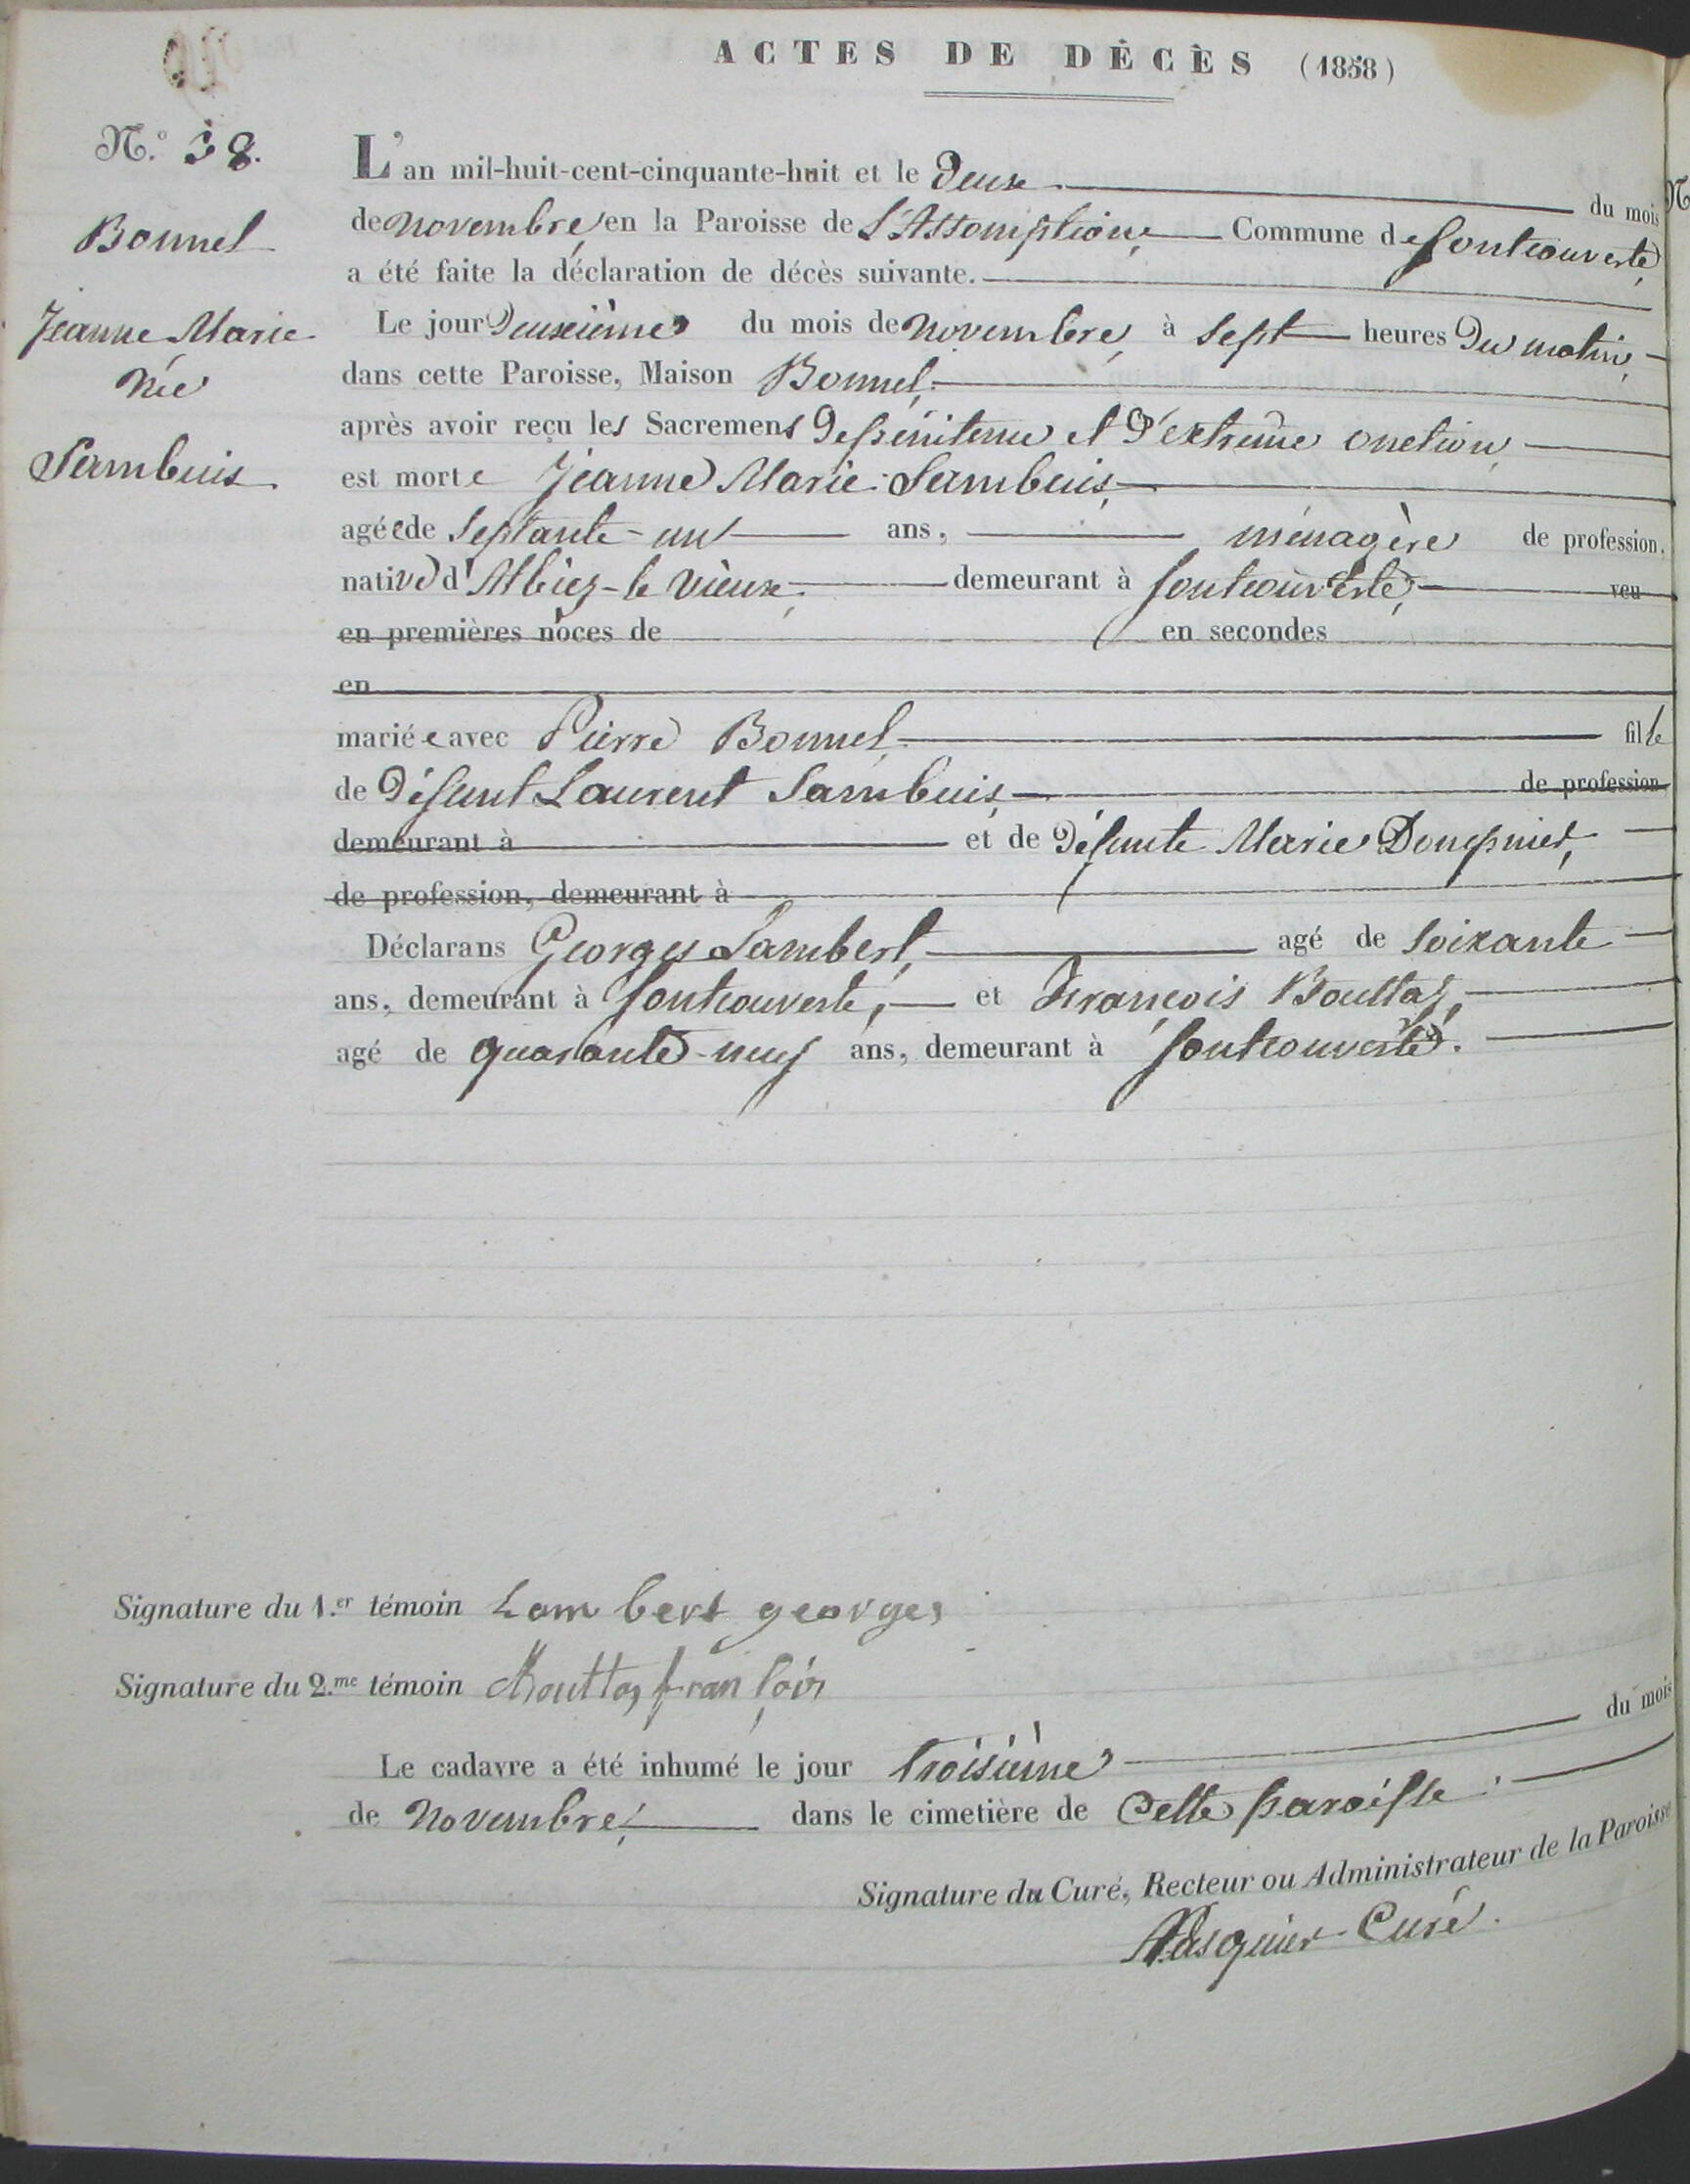 ACTES DE DÉCÈS (1858)
N.º 38.
Bonnel
Jeanne Marie
née
Sambuis
L'an mil-huit-cent-cinquante-huit et le Deux du mois
de novembre, en la Paroisse de L'Assomption, Commune de fontcouverte,
a été faite la déclaration de décès suivante.
Le jour Deuxième du mois de novembre, à sept heures Du matin,
dans cette Paroisse, Maison Bonnel,
après avoir reçu les Sacremens De pénitence et D'extrême onction,
est morte Jeanne Marie Sambuis,
agée de septante-un ans, ménagère de profession.
native d'Albiez-le vieux, demeurant à fontcouverte, veu
en premières noces de en secondes
en
mariée avec Pierre Bonnel, fille
de Défunt Laurent Sambuis, de profession
demeurant à et de Défunte Marie
de profession, demeurant à
Déclarans Georges Lambert, agé de soixante
ans, demeurant à fontcouverte, et François Bouttaz,
agé de quarante-neuf ans, demeurant à fontcouverte.
Signature du 1.er témoin Lambert georges
Signature du 2.me témoin Bouttaz françois
Le cadavre a été inhumé le jour troisième du mois
de novembre, dans le cimetière de cette paroisse.
Signature du Curé, Recteur ou Administrateur de la Paroisse
Pasquier Curé.